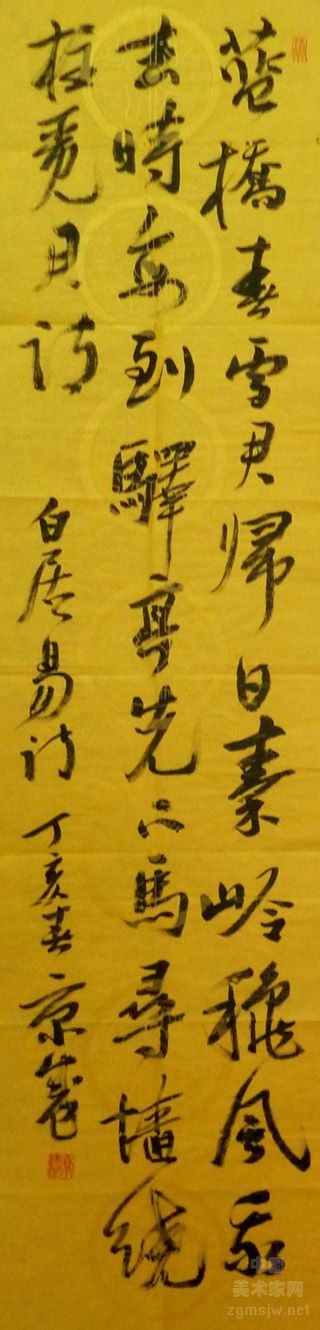 藍橋春雪君歸日秦岭穐風我
去時每到驛亭先下馬尋墻繞
柱覓君诗
白居易诗 丁亥春京
中国
美术家网
zgmsjw.net